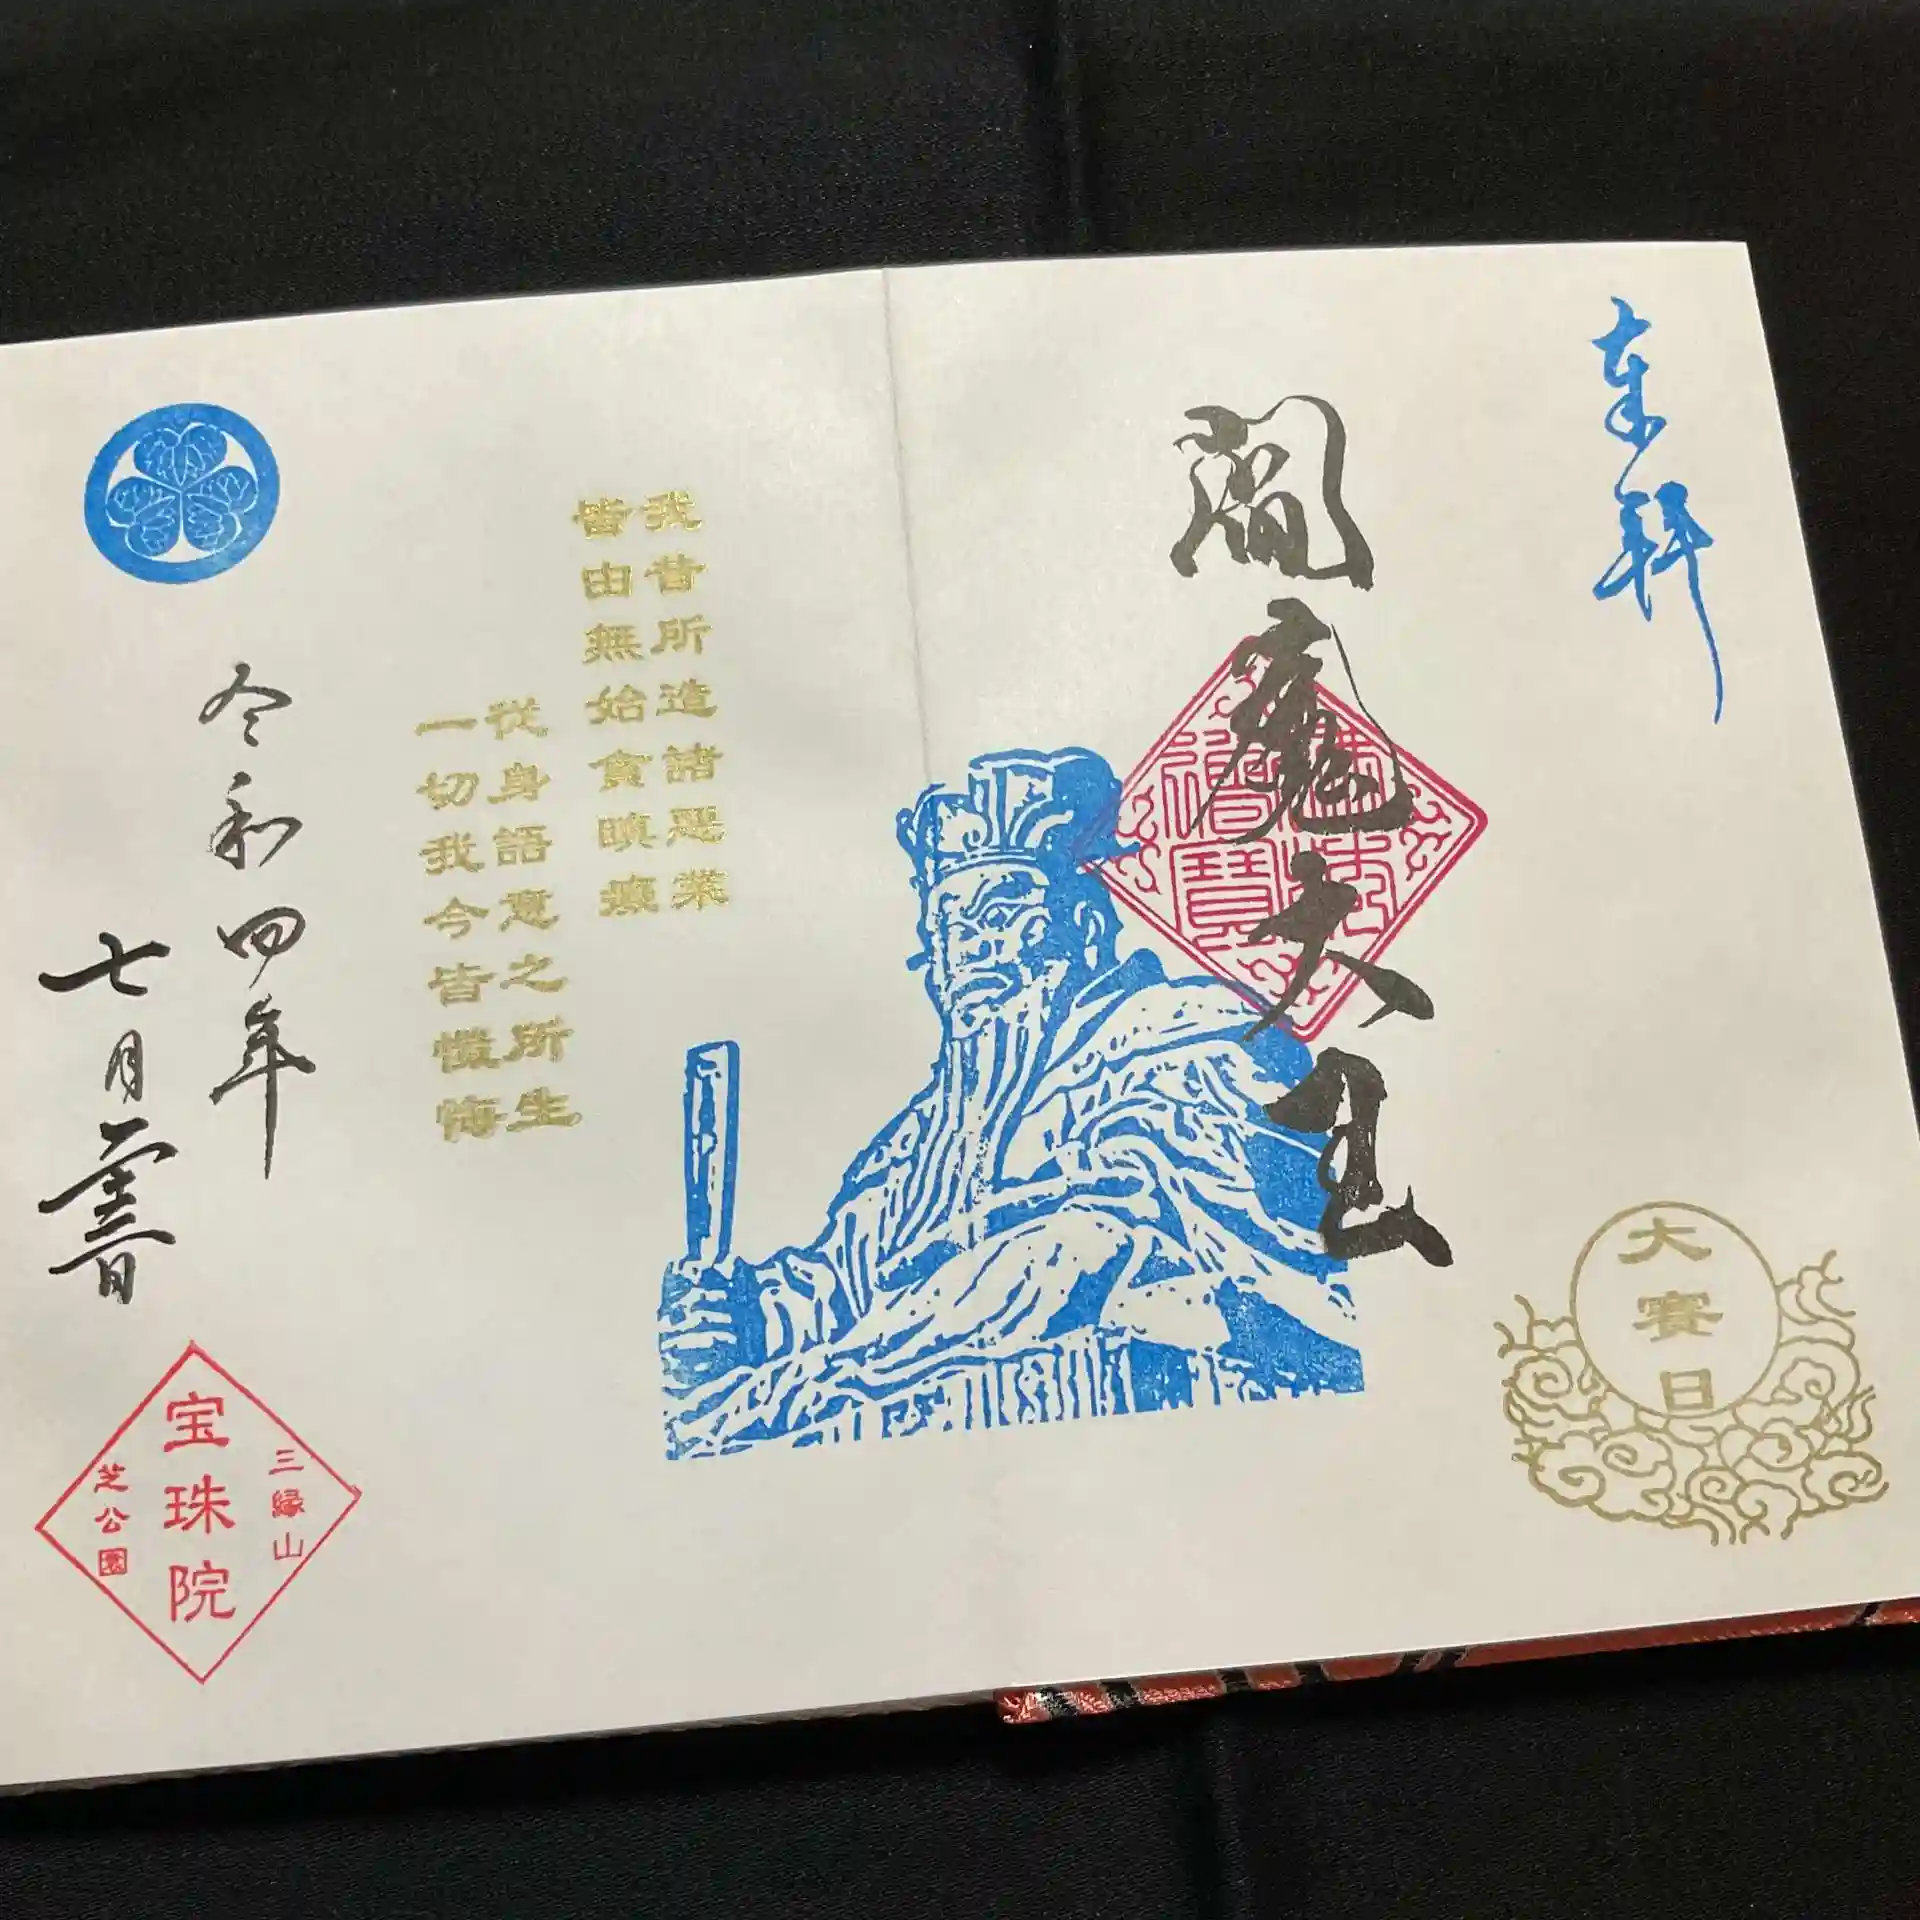 奉拝
閻魔大王
佛法僧寶
大賽日
我昔所造諸悪業
皆由無始貪瞋癡
從身語意之所生
一切我今皆懺悔
令和四年
七月
三縁山
宝珠院
芝公園